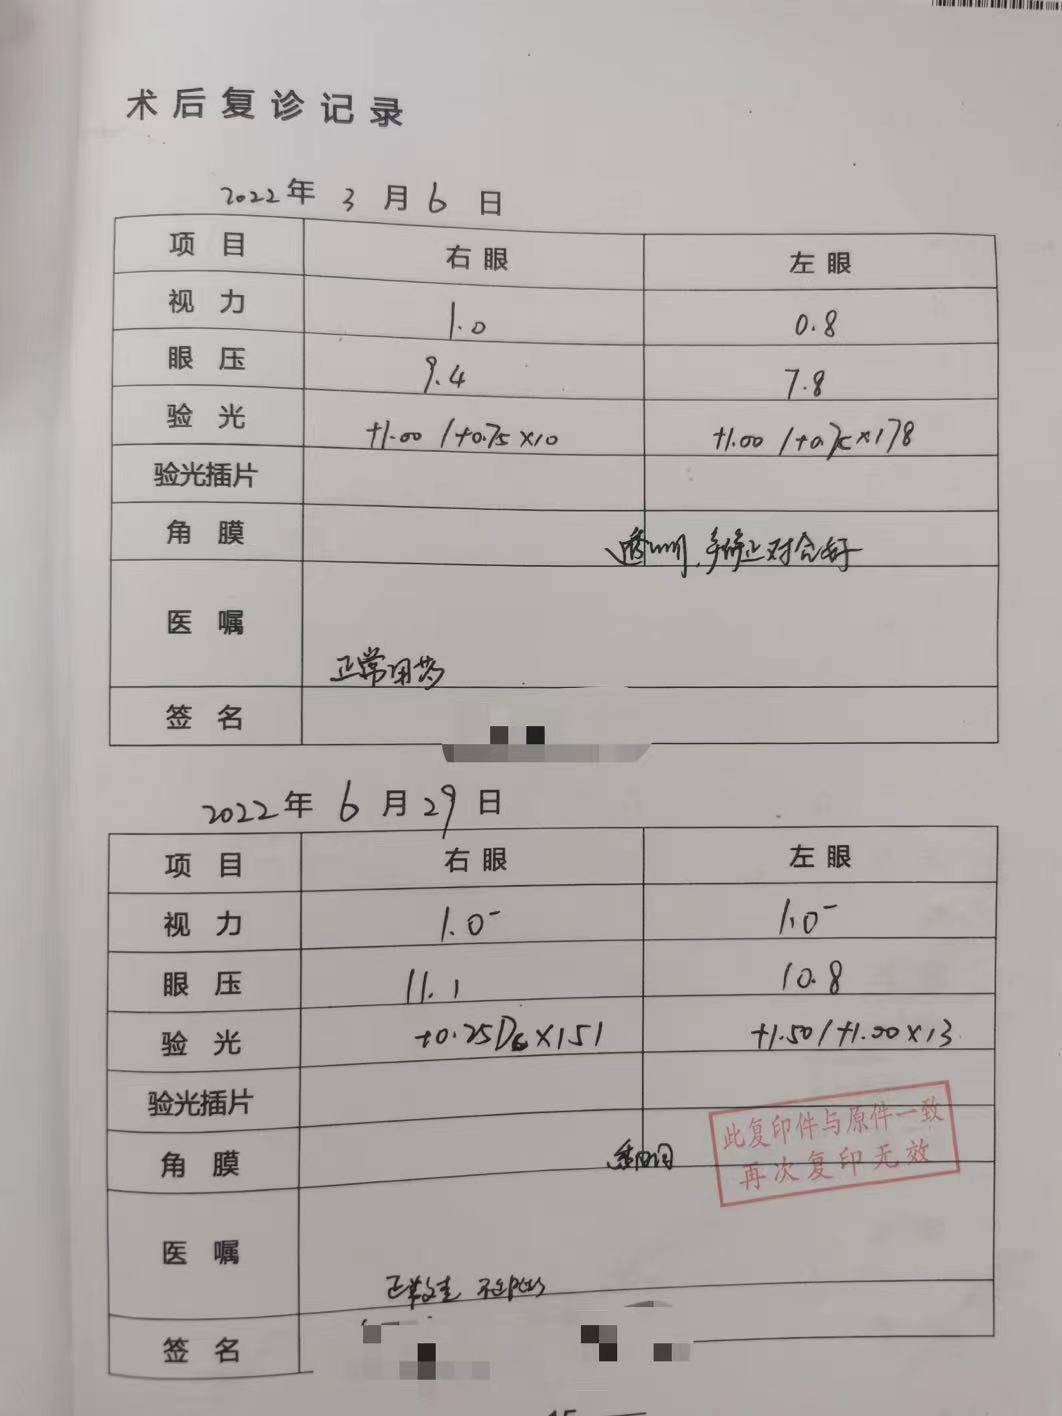 术后复诊记录
2022年 3 月 6 日
项 目 右眼 左眼
视 力 1.0 0.8
眼 压 9.4 7.8
验 光 +1.00 /+0.75×10 +1.00 /+0.75×178
验光插片
角 膜 透明,对合好
医 嘱
正常用药
签 名
2022年 6 月 29 日
项 目 右眼 左眼
视 力 1.0⁻ 1.0⁻
眼 压 11.1 10.8
验 光 +0.25Dc×151 +1.50/+1.00×13
验光插片
此复印件与原件一致
再次复印无效
角 膜 透明
医 嘱
正常
签 名